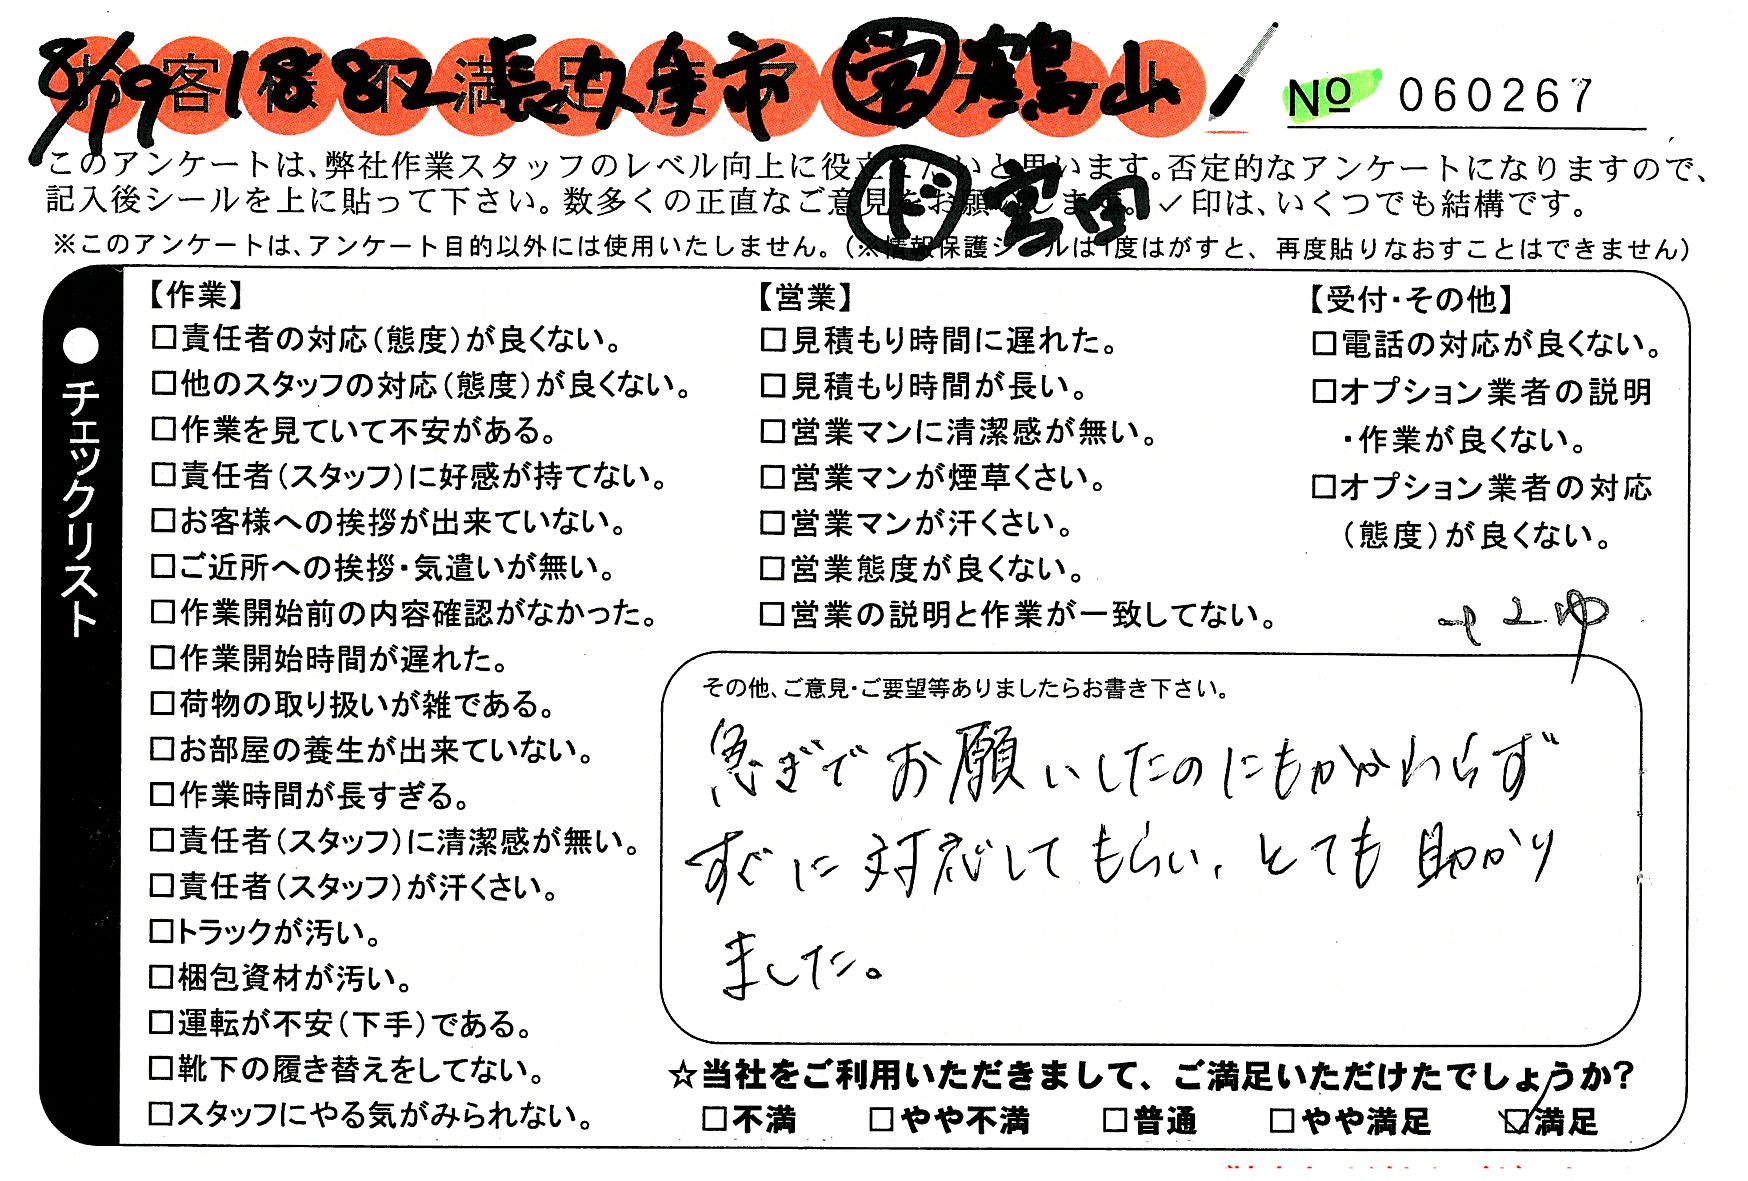 8/19 1882 長久手市 営 鶴山
No 060267
このアンケートは、弊社作業スタッフのレベル向上に役立てたいと思います。否定的なアンケートになりますので、
ド 宮田
記入後シールを上に貼って下さい。数多くの正直なご意見をお願いします。✓印は、いくつでも結構です。
※このアンケートは、アンケート目的以外には使用いたしません。(※情報保護シールは1度はがすと、再度貼りなおすことはできません)
●チェックリスト
【作業】
□責任者の対応(態度)が良くない。
□他のスタッフの対応(態度)が良くない。
□作業を見ていて不安がある。
□責任者(スタッフ)に好感が持てない。
□お客様への挨拶が出来ていない。
□ご近所への挨拶・気遣いが無い。
□作業開始前の内容確認がなかった。
□作業開始時間が遅れた。
□荷物の取り扱いが雑である。
□お部屋の養生が出来ていない。
□作業時間が長すぎる。
□責任者(スタッフ)に清潔感が無い。
□責任者(スタッフ)が汗くさい。
□トラックが汚い。
□梱包資材が汚い。
□運転が不安(下手)である。
□靴下の履き替えをしてない。
□スタッフにやる気がみられない。
【営業】
□見積もり時間に遅れた。
□見積もり時間が長い。
□営業マンに清潔感が無い。
□営業マンが煙草くさい。
□営業マンが汗くさい。
□営業態度が良くない。
□営業の説明と作業が一致してない。
【受付・その他】
□電話の対応が良くない。
□オプション業者の説明
・作業が良くない。
□オプション業者の対応
(態度)が良くない。
その他、ご意見・ご要望等ありましたらお書き下さい。
急ぎでお願いしたのにもかかわらず
すぐに対応してもらい、とても助かり
ました。
☆当社をご利用いただきまして、ご満足いただけたでしょうか?
□不満 □やや不満 □普通 □やや満足 ☑満足